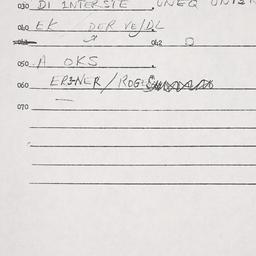 030 DI INTERSTE UNEQ
040 EK DER VE/DL
042
050 A OKS
060 ERSNER/ROG
070